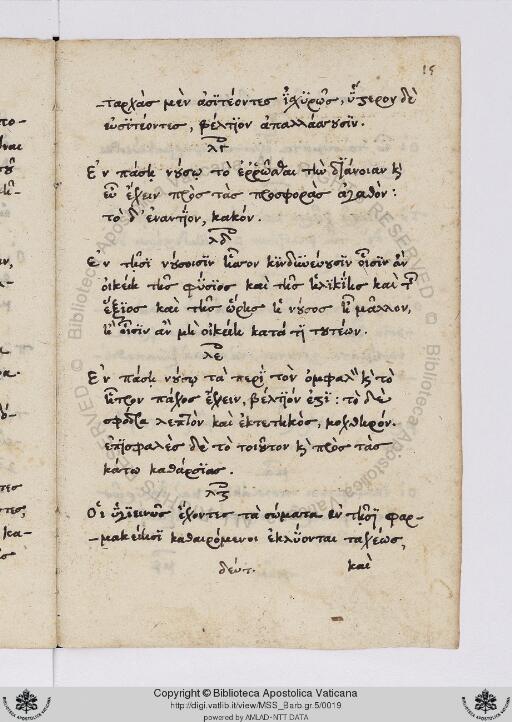 15
-ταρχὰς μὲν ἀσιτέοντες ἰσχυρῶς, ὕστερον δὲ
εὐσιτέοντες, βέλτιον ἀπαλλάσσουσιν.
λγ
Ἐν πάσῃ νούσῳ τὸ ἐρρῶσθαι τὴν διάνοιαν καὶ
εὖ ἔχειν πρὸς τὰς προσφορὰς ἀγαθὸν:
τὸ δ' ἐναντίον, κακόν.
λδ
Ἐν τῇσι νούσοισιν ἧσσον κινδυνεύουσιν οἷσιν ἂν
οἰκείη τῆς φύσιος καὶ τῆς ἡλικίης καὶ τῆς
ἕξιος καὶ τῆς ὥρης ἡ νοῦσος ᾖ μᾶλλον,
ἢ οἷσιν ἂν μὴ οἰκείη κατά τι τουτέων.
λε
Ἐν πάσῃ νούσῳ τὰ περὶ τὸν ὀμφαλὸν καὶ τὸ
ἦτρον πάχος ἔχειν, βέλτιόν ἐστι: τὸ δὲ
σφόδρα λεπτὸν καὶ ἐκτετηκὸς, μοχθηρόν.
ἐπισφαλὲς δὲ τὸ τοιοῦτον καὶ πρὸς τὰς
κάτω καθάρσιας.
λς
Οἱ ὑγιεινῶς ἔχοντες τὰ σώματα ἐν τῇσι φαρ-
-μακείῃσι καθαιρόμενοι ἐκλύονται ταχέως,
δεύτ. καὶ
Copyright © Biblioteca Apostolica Vaticana
http://digi.vatlib.it/view/MSS_Barb.gr.5/0019
powered by AMLAD-NTT DATA